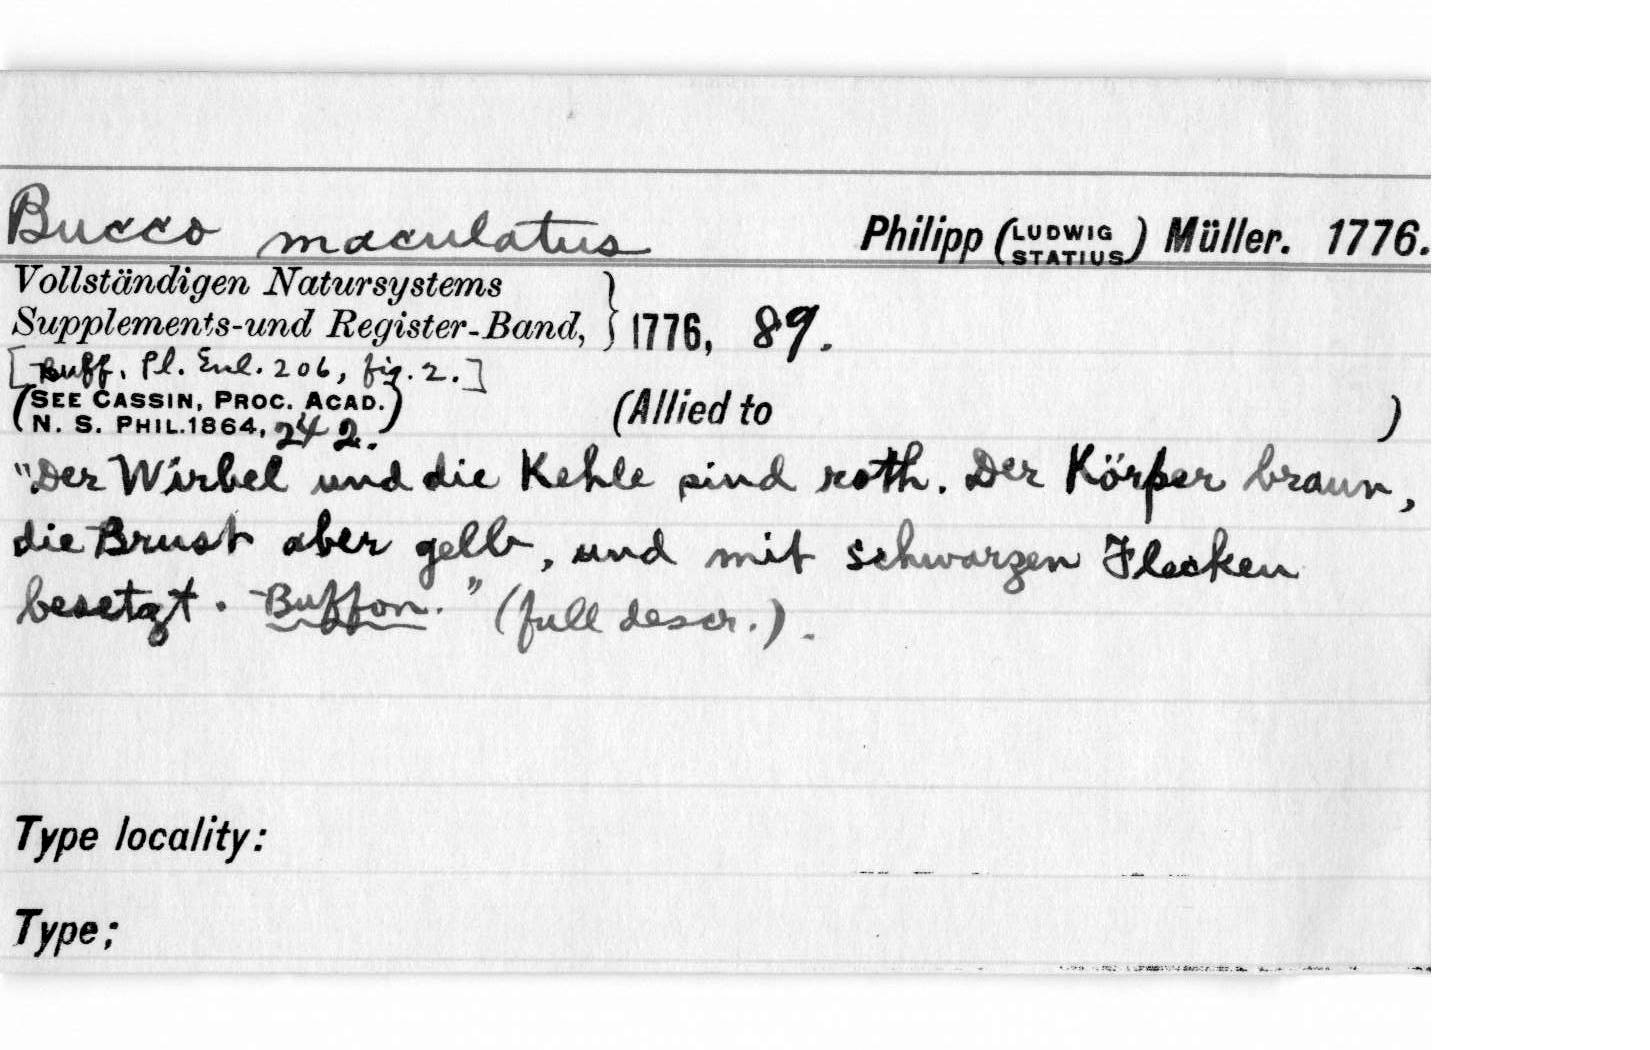 Bucco maculatus Philipp (LUDWIG STATIUS) Müller. 1776.
Vollständigen Natursystems
Supplements-und Register-Band, } 1776, 89.
[Buff. Pl. Enl. 206, fig. 2.]
(SEE CASSIN, PROC. ACAD.
N. S. PHIL. 1864, 242.) (Allied to )
"Der Wirbel und die Kehle sind roth. Der Körper braun,
die Brust aber gelb, und mit schwarzen Flecken
besetzt. Buffon." (full descr.).
Type locality:
Type;